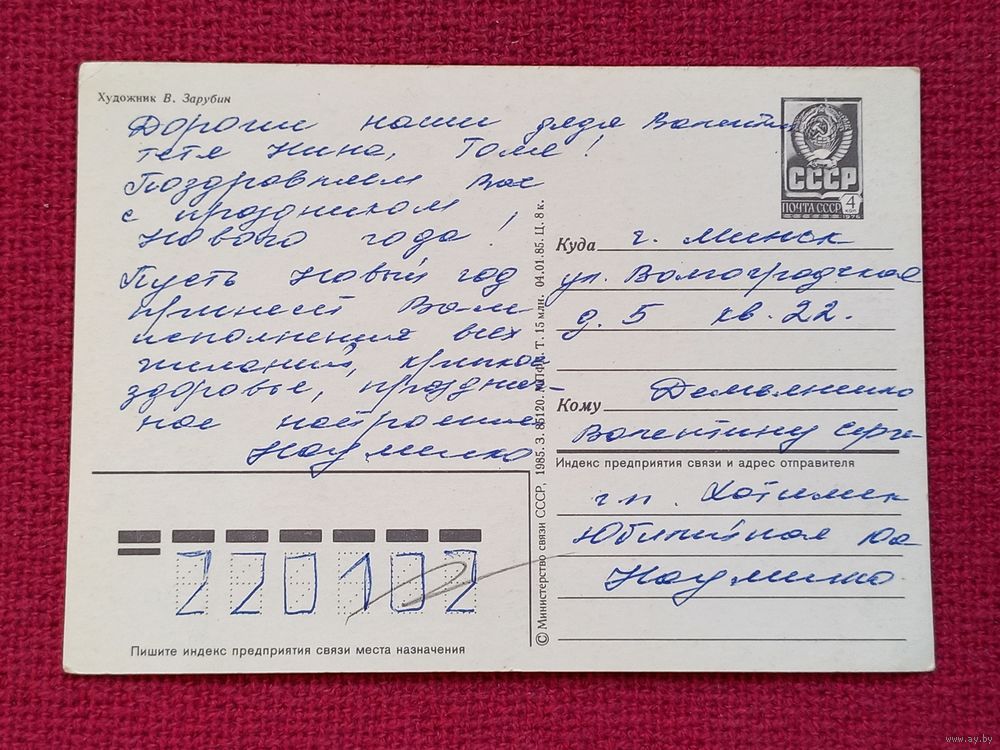 Художник В. Зарубин
Дорогие наши дядя Валентин
тетя Нина, Тома!
Поздравляем Вас
с праздником
Нового года!
Пусть Новый год
принесет Вам
исполнения всех
желаний, крепкое
здоровье, празднич-
ное настроение
Наумнико
СССР
ПОЧТА СССР
4
1976
Куда г. Минск
ул. Волгоградская
д. 5 кв. 22.
Кому
Валентину Серге-
Индекс предприятия связи и адрес отправителя
г.п. Хотимск
Юбилейная 10а
220102
Пишите индекс предприятия связи места назначения
© Министерство связи СССР, 1985. З. 85120. ППФГ. Т. 15 млн. 04.01.85. Ц. 8 к.
www.ay.by